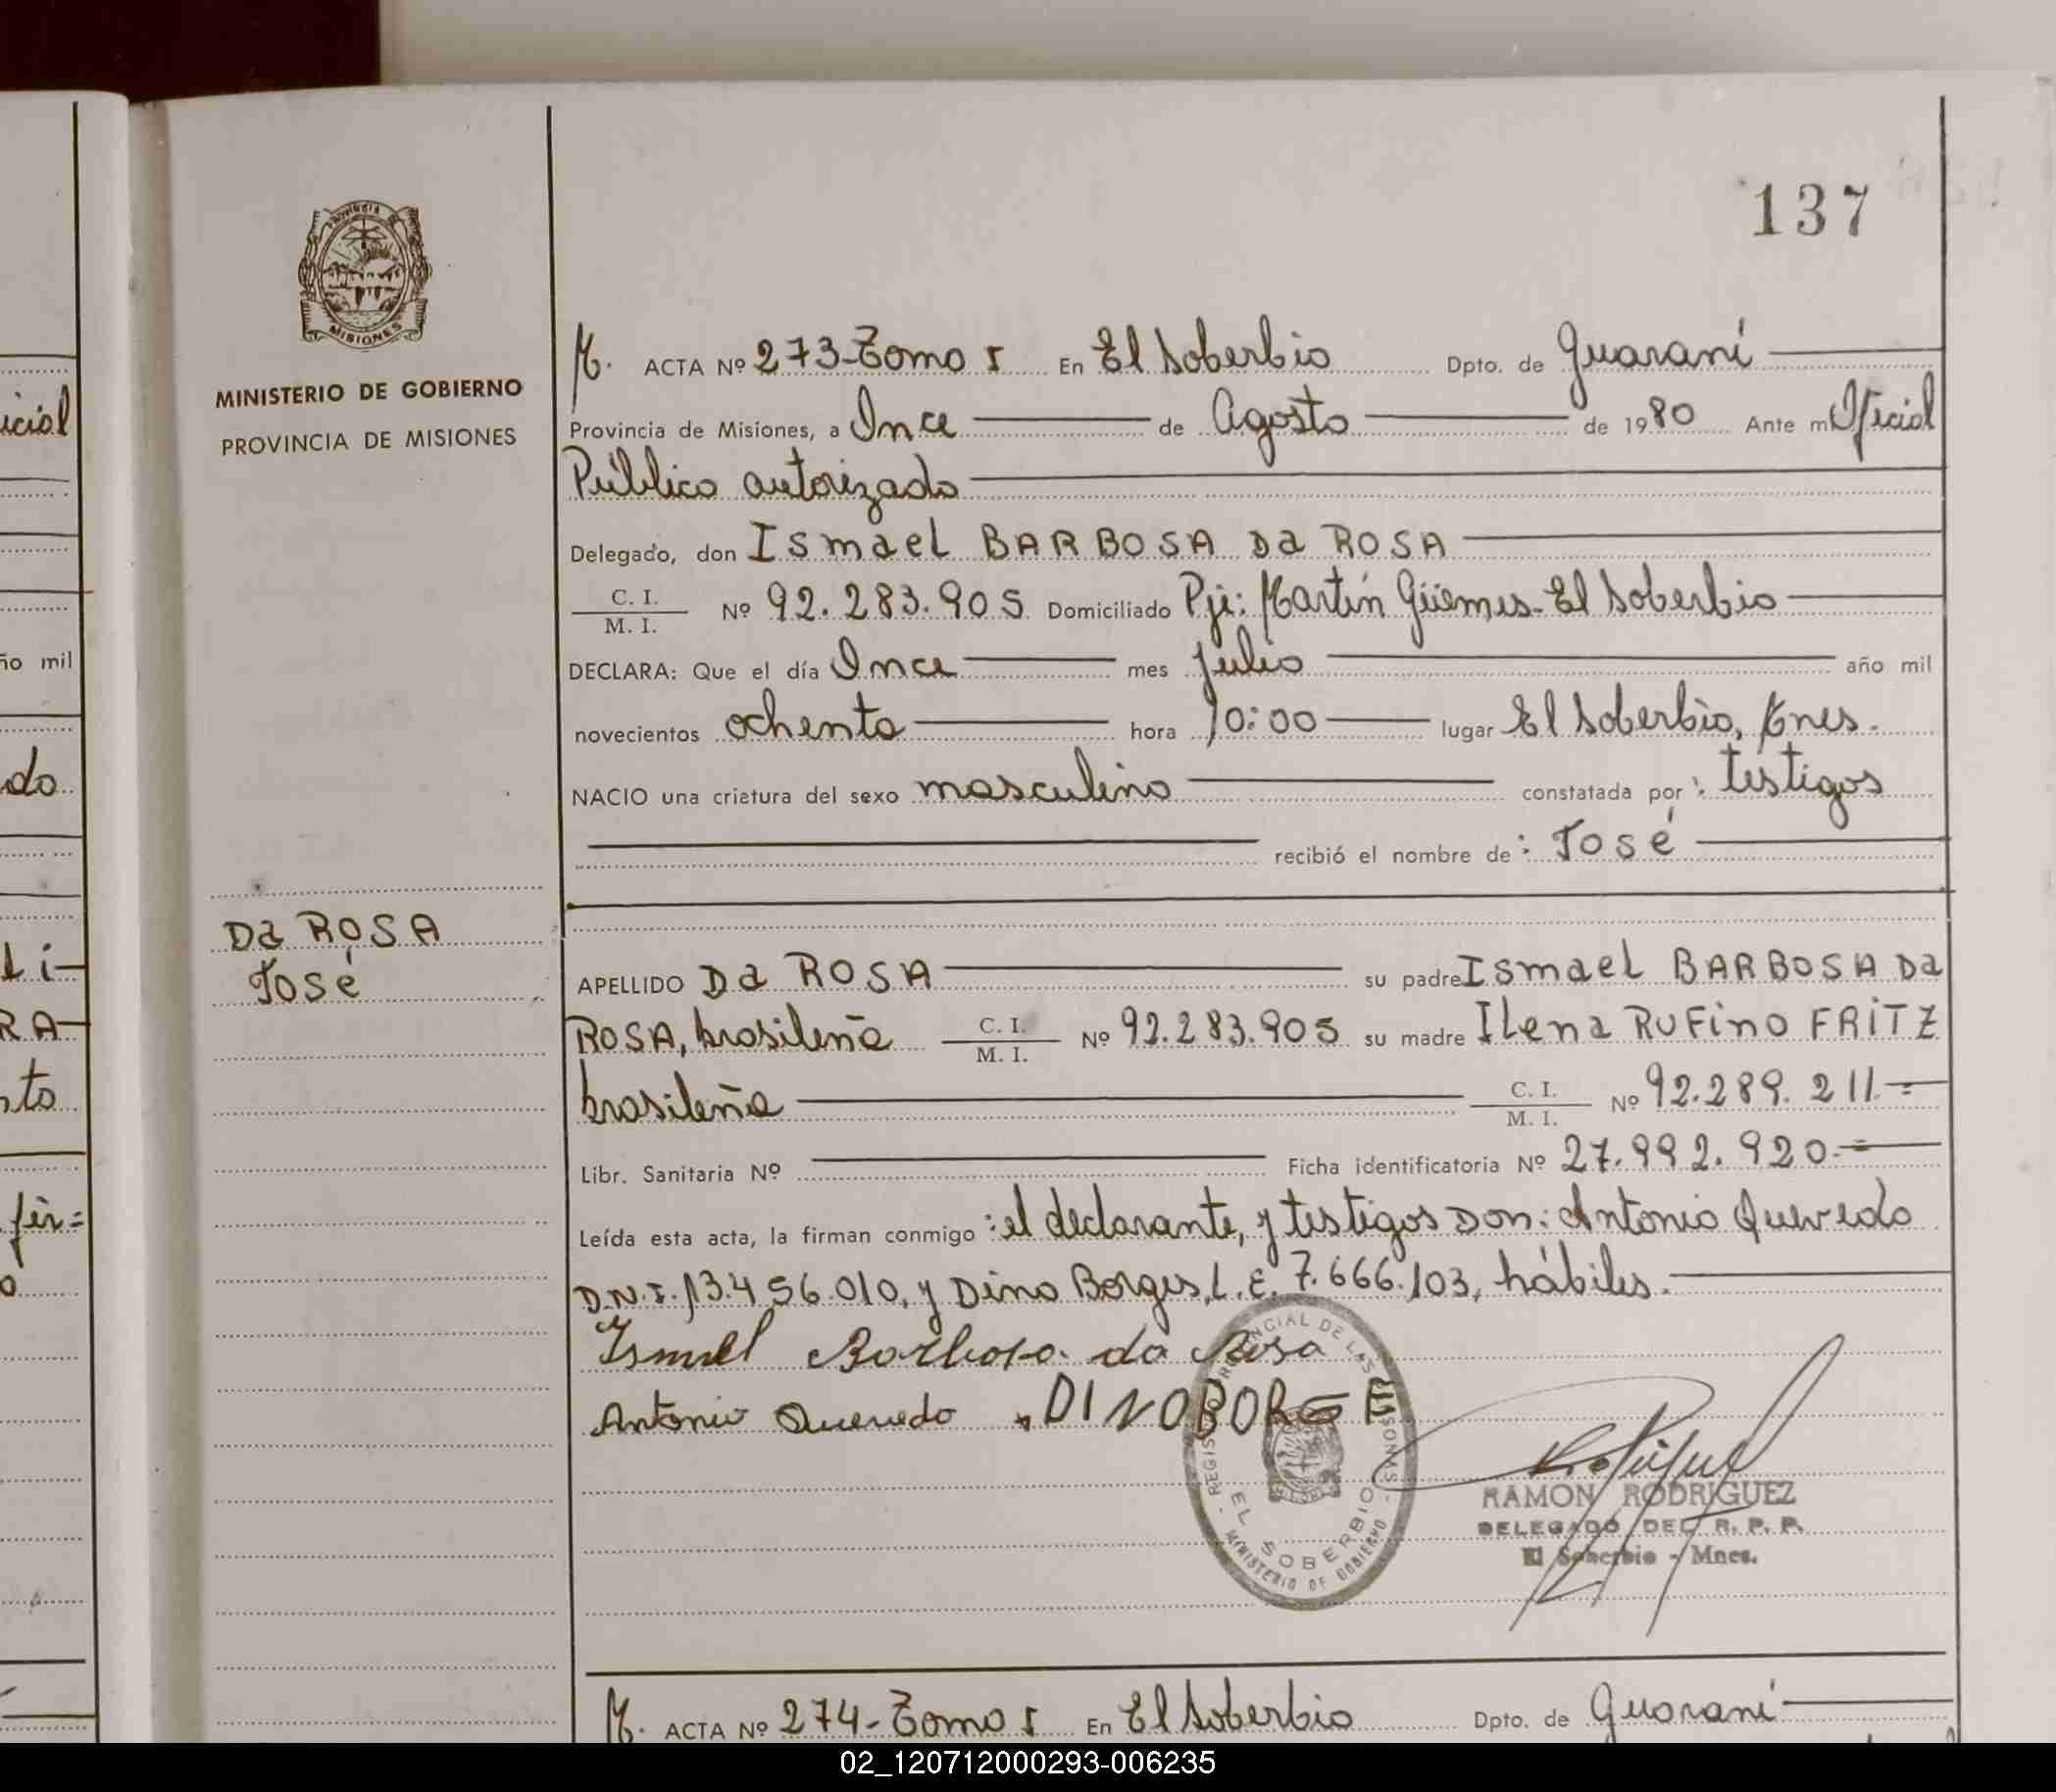 137
MINISTERIO DE GOBIERNO
PROVINCIA DE MISIONES
M. ACTA Nº 273-Tomo I En El Soberbio Dpto. de Guaraní
Provincia de Misiones, a Once de Agosto de 1980 Ante mi Oficial
Público autorizado
Delegado, don Ismael BARBOSA Da ROSA
C. I. / M. I. Nº 92.283.905 Domiciliado Pje: Martín Güemes-El Soberbio
DECLARA: Que el día Once mes Julio año mil
novecientos ochenta hora 10:00 lugar El Soberbio, Mnes.
NACIO una criatura del sexo masculino constatada por: testigos
recibió el nombre de: José
Da ROSA
José
APELLIDO Da ROSA su padre Ismael BARBOSA Da
ROSA, brasileña C. I. / M. I. Nº 92.283.905 su madre ILena RUFino FRITZ
brasileña C. I. / M. I. Nº 92.289.211.=
Libr. Sanitaria Nº Ficha identificatoria Nº 27.992.920.=
Leída esta acta, la firman conmigo: el declarante, y testigos Don: Antonio Quevedo
D.N.I. 13.456.010, y Dino Borges, L.E. 7.666.103, hábiles.
Ismael Barbosa da Rosa
Antonio Quevedo DINO BORGE
REGISTRO PROVINCIAL DE LAS PERSONAS
EL SOBERBIO
MINISTERIO DE GOBIERNO
RAMON RODRIGUEZ
DELEGADO DEL R. P. P.
El Soberbio - Mnes.
M. ACTA Nº 274-Tomo I En El Soberbio Dpto. de Guaraní
icial
ño mil
do
Li-
RA-
to
fir=
o
02_120712000293-006235